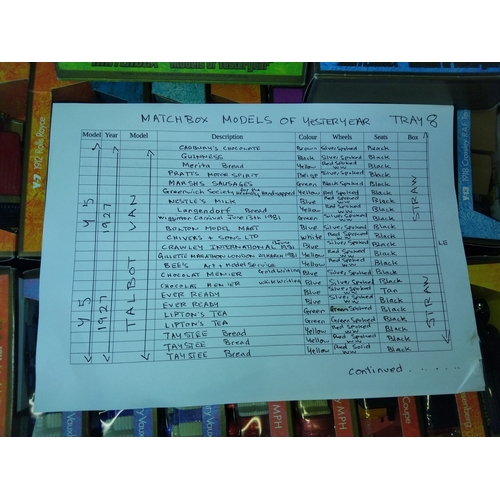 MATCHBOX MODELS OF YESTERYEAR TRAY 8
Model Year Model Description Colour Wheels Seats Box
Y5 1927 TALBOT VAN STRAW
CADBURY'S CHOCOLATE Brown Silver Spoked Black
GUINNESS Black Silver Spoked Black
Merita Bread Yellow Red Spoked W.W Black
PRATTS MOTOR SPIRIT Beige Silver Spoked Black
MARSHS SAUSAGES Green Black
Greenwich Society for the Mentally Handicapped Yellow Red Spoked W.W Black
NESTLE'S MILK Blue Black
Langendorf Bread Yellow Black
Wigginton Carnival June 13th 1981 Green Black
BOLTON MODEL MART Blue Silver Spoked Black
CHIVERS & SONS LTD White Red Spoked Black
CRAWLEY INTERNATIONAL 1981 Blue Silver Spoked Black
GILLETTE MARATHON LONDON 29 MARCH 1981 Yellow Red Spoked Black
BEE'S Art & Model Service Yellow Red Spoked W.W Black
CHOCOLAT MENIER Gold Writing Blue Silver Spoked Black
CHOCOLAT MENIER White Writing Blue Silver Spoked Black
EVER READY Blue Tan
EVER READY Blue Silver Spoked Black
LIPTON'S TEA Green Green Spoked Black
LIPTON'S TEA Green Green Spoked Black
TAYSTEE Bread Yellow Red Spoked W.W Black
TAYSTEE Bread Yellow Red Spoked Black
TAYSTEE Bread Yellow Red Solid W.W Black
Y5 1927 STRAW
LE
continued......
Y-7 1912 Rolls Royce
MPH
Coupe